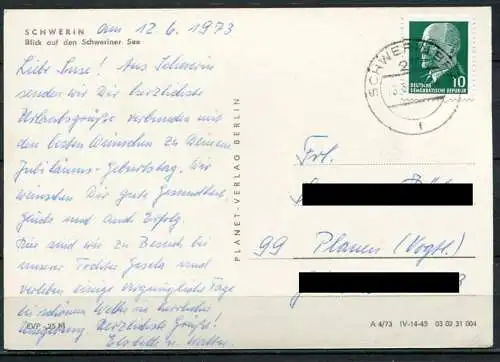 SCHWERIN am 12.6.1973
Blick auf den Schweriner See
Liebe Suse! Aus Schwerin
senden wir Dir herzlichste
Urlaubsgrüße verbunden mit
den besten Wünschen zu Deinem
Jubiläums-Geburtstag. Wir
wünschen Dir gute Gesundheit,
Glück und auch Erfolg.
Wir sind zu Besuch bei
unserer Tochter Gisela und
verleben einige vergnügliche Tage
bei schönem Wetter in herrlicher
Umgebung. Herzlichste Grüße!
EVP -,25 M
PLANET-VERLAG BERLIN
SCHWERIN
2
10
DEUTSCHE
DEMOKRATISCHE REPUBLIK
Frl.
99 Plauen (Vogtl.)
A 4/73 IV-14-45 03 02 31 004